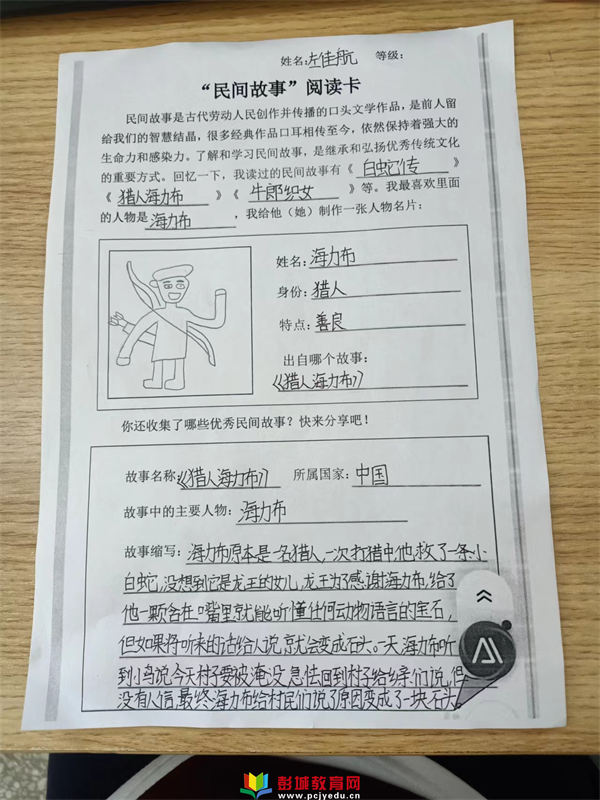 姓名:左佳航 等级:
“民间故事”阅读卡
民间故事是古代劳动人民创作并传播的口头文学作品，是前人留
给我们的智慧结晶，很多经典作品口耳相传至今，依然保持着强大的
生命力和感染力。了解和学习民间故事，是继承和弘扬优秀传统文化
的重要方式。回忆一下，我读过的民间故事有《 白蛇传 》
《 猎人海力布 》《 牛郎织女 》等。我最喜欢里面
的人物是 海力布 ，我给他（她）制作一张人物名片：
姓名：海力布
身份：猎人
特点：善良
出自哪个故事：
《猎人海力布》
你还收集了哪些优秀民间故事？快来分享吧！
故事名称《猎人海力布》 所属国家：中国
故事中的主要人物：海力布
故事缩写：海力布原本是一名猎人,一次打猎中他救了一条小
白蛇,没想到它是龙王的女儿,龙王为了感谢海力布,给了
他一颗含在嘴里就能听懂任何动物语言的宝石,
但如果将听来的话给人说,就会变成石头。一天,海力布听
到小鸟说今天村子要被淹没,急忙回到村子给乡亲们说,但
没有人信,最终海力布给村民们说了原因变成了一块石头。
彭城教育网
www.pcjyedu.cn